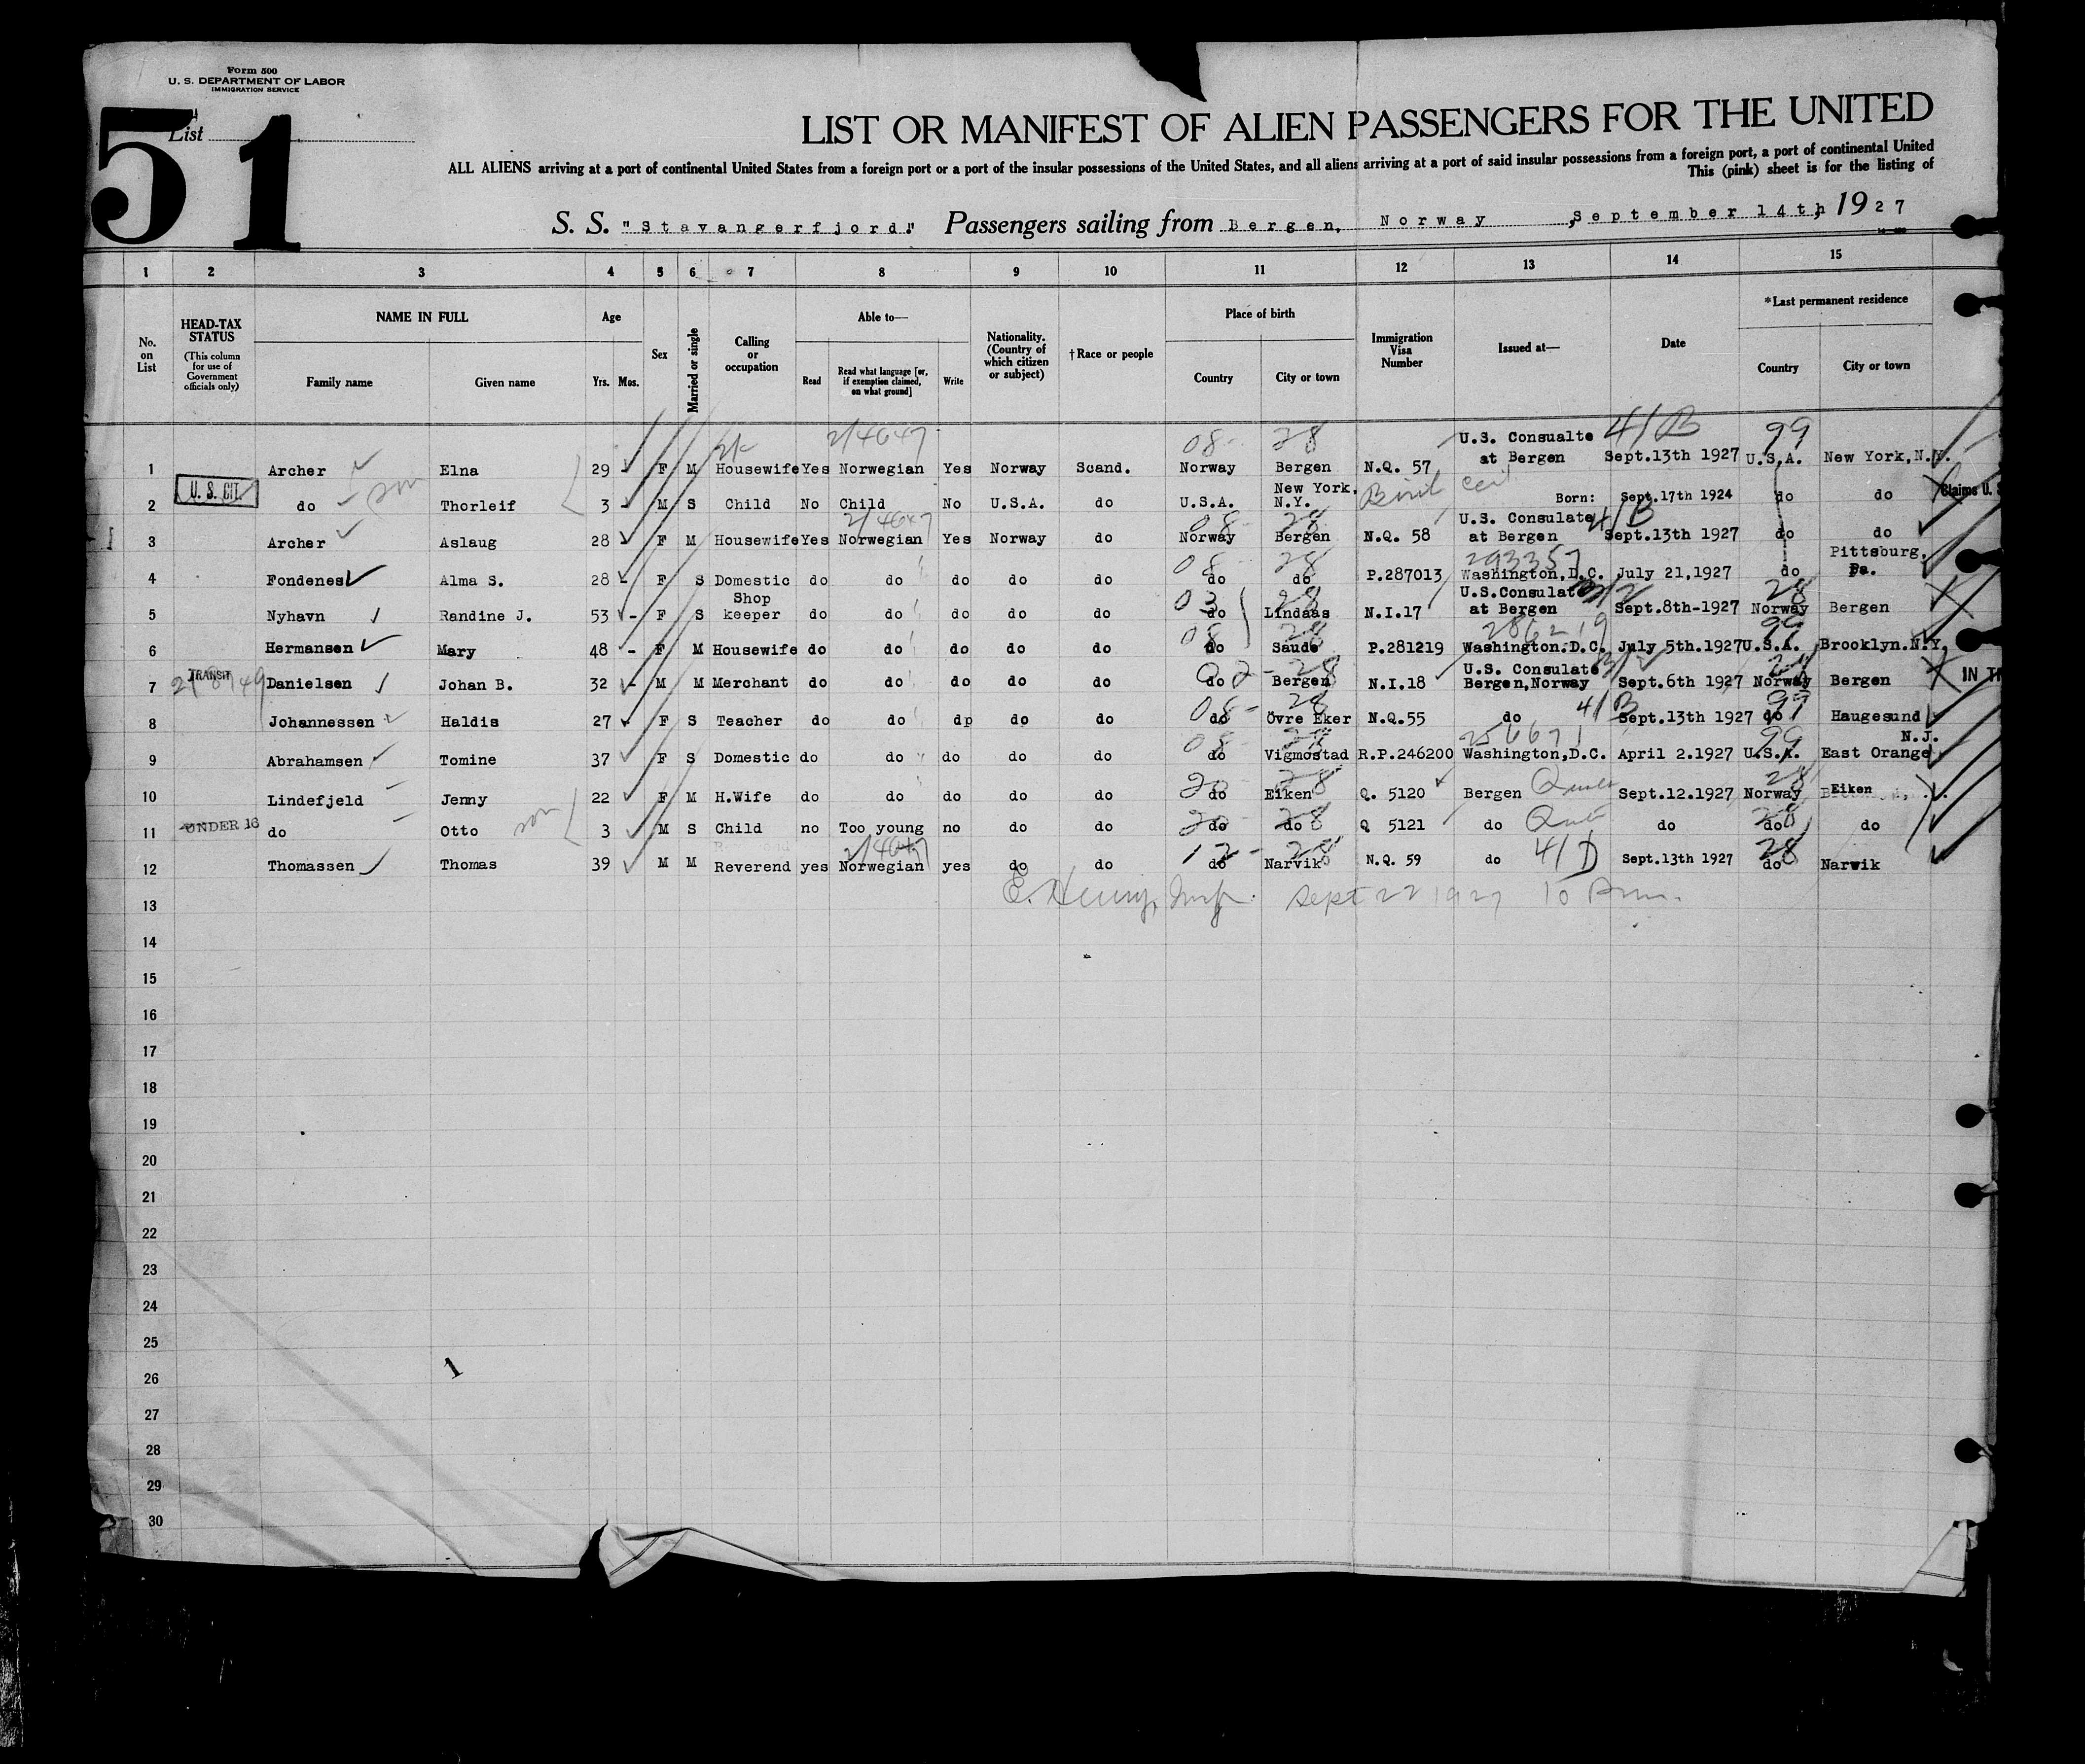 Form 500
U. S. DEPARTMENT OF LABOR
IMMIGRATION SERVICE
51
List
LIST OR MANIFEST OF ALIEN PASSENGERS FOR THE UNITED
ALL ALIENS arriving at a port of continental United States from a foreign port or a port of the insular possessions of the United States, and all aliens arriving at a port of said insular possessions from a foreign port, a port of continental United
This (pink) sheet is for the listing of
S. S. "Stavangerfjord" Passengers sailing from Bergen, Norway, September 14th, 1927
1 2 3 4 5 6 7 8 9 10 11 12 13 14 15
No. on List
HEAD-TAX STATUS (This column for use of Government officials only)
NAME IN FULL Family name Given name
Age Yrs. Mos.
Sex
Married or single
Calling or occupation
Able to— Read Read what language [or, if exemption claimed, on what ground] Write
Nationality. (Country of which citizen or subject)
†Race or people
Place of birth Country City or town
Immigration Visa Number
Issued at—
Date
*Last permanent residence Country City or town
2/4647 08- 28 41B 99
1 Archer Elna 29 F M Housewife Yes Norwegian Yes Norway Scand. Norway Bergen N.Q. 57 U.S. Consualte at Bergen Sept.13th 1927 U.S.A. New York,N.Y.
2 U. S. CIT. do son Thorleif 3 M S Child No Child No U.S.A. do U.S.A. New York, N.Y. Born: Sept.17th 1924 do do Claims U. S
2/4647 08- 28 41B
3 Archer Aslaug 28 F M Housewife Yes Norwegian Yes Norway do Norway Bergen N.Q. 58 U.S. Consulate at Bergen Sept.13th 1927 do do
08- 28 293357
4 Fondenes Alma S. 28 - F S Domestic do do do do do do do P.287013 Washington,D.C. July 21,1927 do Pittsburg, Pa.
03 28 28
5 Nyhavn Randine J. 53 - F S Shop keeper do do do do do do Lindaas N.I.17 U.S.Consulate at Bergen Sept.8th-1927 Norway Bergen
08 28 286219 99
6 Hermansen Mary 48 - F M Housewife do do do do do do Saude P.281219 Washington.D.C. July 5th.1927 U.S.A. Brooklyn.N.Y.
02-28 28
7 TRANSIT Danielsen Johan B. 32 - M M Merchant do do do do do do Bergen N.I.18 U.S. Consulate Bergen,Norway Sept.6th 1927 Norway Bergen IN T
08- 28 41B
8 Johannessen Haldis 27 F S Teacher do do dp do do do Övre Eker N.Q.55 do Sept.13th 1927 do Haugesund
08 28 99
9 Abrahamsen Tomine 37 F S Domestic do do do do do do Vigmostad R.P.246200 Washington,D.C. April 2.1927 U.S.A. N.J. East Orange
20 28 28
10 Lindefjeld Jenny 22 F M H.Wife do do do do do do Eiken Q. 5120 Bergen Sept.12.1927 Norway Eiken
20 28 28
11 UNDER 16 do Otto son 3 M S Child no Too young no do do do do Q 5121 do do do do
2/4647 12- 28 41D 28
12 Thomassen Thomas 39 M M Reverend yes Norwegian yes do do do Narvik N.Q. 59 do Sept.13th 1927 do Narwik
13 Sept 22 1927 10
14
15
16
17
18
19
20
21
22
23
24
25
26
27
28
29
30
1